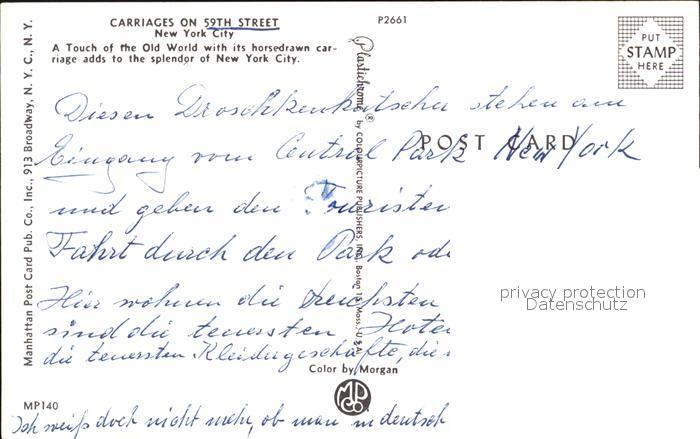 CARRIAGES ON 59TH STREET
New York City
A Touch of the Old World with its horsedrawn car-
riage adds to the splendor of New York City.
P2661
PUT
STAMP
HERE
Manhattan Post Card Pub. Co., Inc., 913 Broadway, N. Y. C., N. Y.
Plastichrome ® by COLOURPICTURE PUBLISHERS, INC. Boston 15, Mass., U.S.A.
POST CARD
Diesen Droschkenkutscher stehen am
Eingang vom Central Park New York
und geben den Touristen
Fahrt durch den Park ode
Hier wohnen die reichsten
sind die teuersten Hote
die teuersten Kleidergeschäfte, die
privacy protection
Datenschutz
Color by Morgan
MP
Co.
MP140
Ich weiß doch nicht mehr, ob man in deutsch